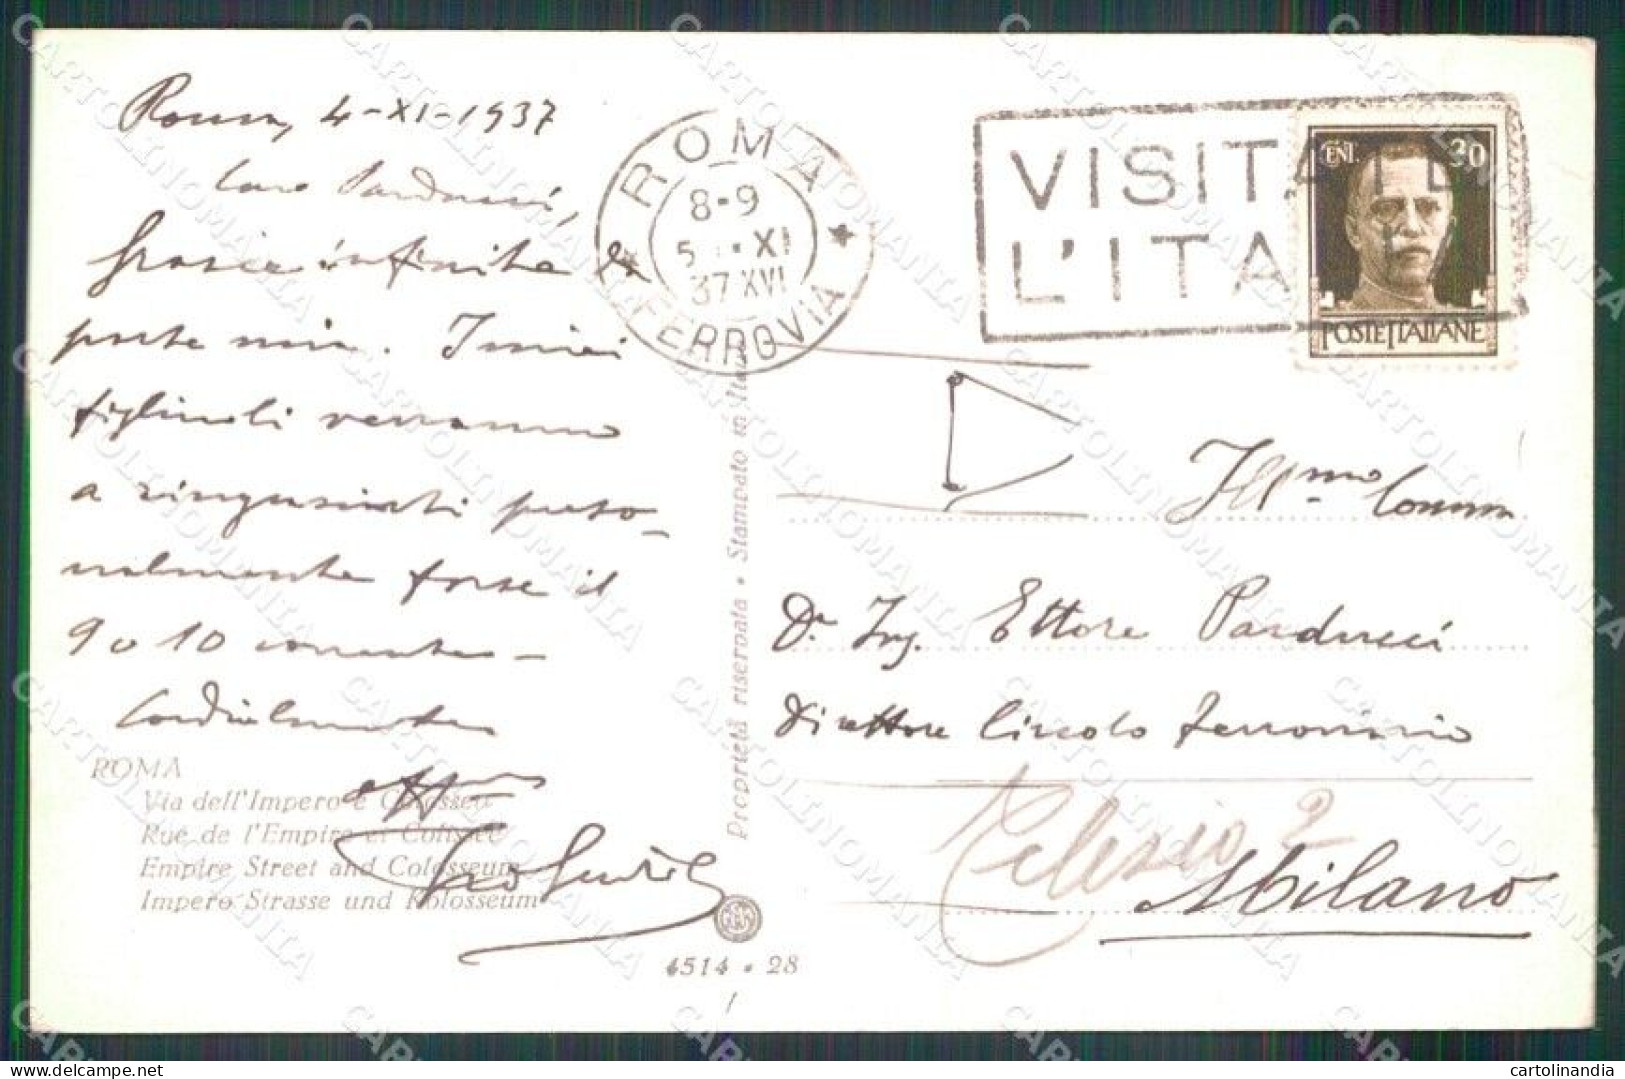 Roma, 4-XI-1937
Caro Parducci,
Grazie infinite da
parte mia. I miei
figlinoli verranno
a ringraziarti perso-
nalmente forse il
9 o 10 corrente -
Cordialmente
ROMA
Via dell'Impero e Colosseo
Rue de l'Empire et Colisée
Empire Street and Colosseum
Impero Strasse und Kolosseum
ROMA
8-9
5 XI
37 XVI
FERROVIA
Proprietà riservata • Stampato in Italia
4514 • 28
VISITATE
L'ITA
CENT. 30
POSTE ITALIANE
Ill.mo Comm
Dr. Ing. Ettore Parducci
Direttore Circolo Ferroviario
Telesio 2
Milano
CARTOLINOMANIA
delcampe.net
cartolinandia